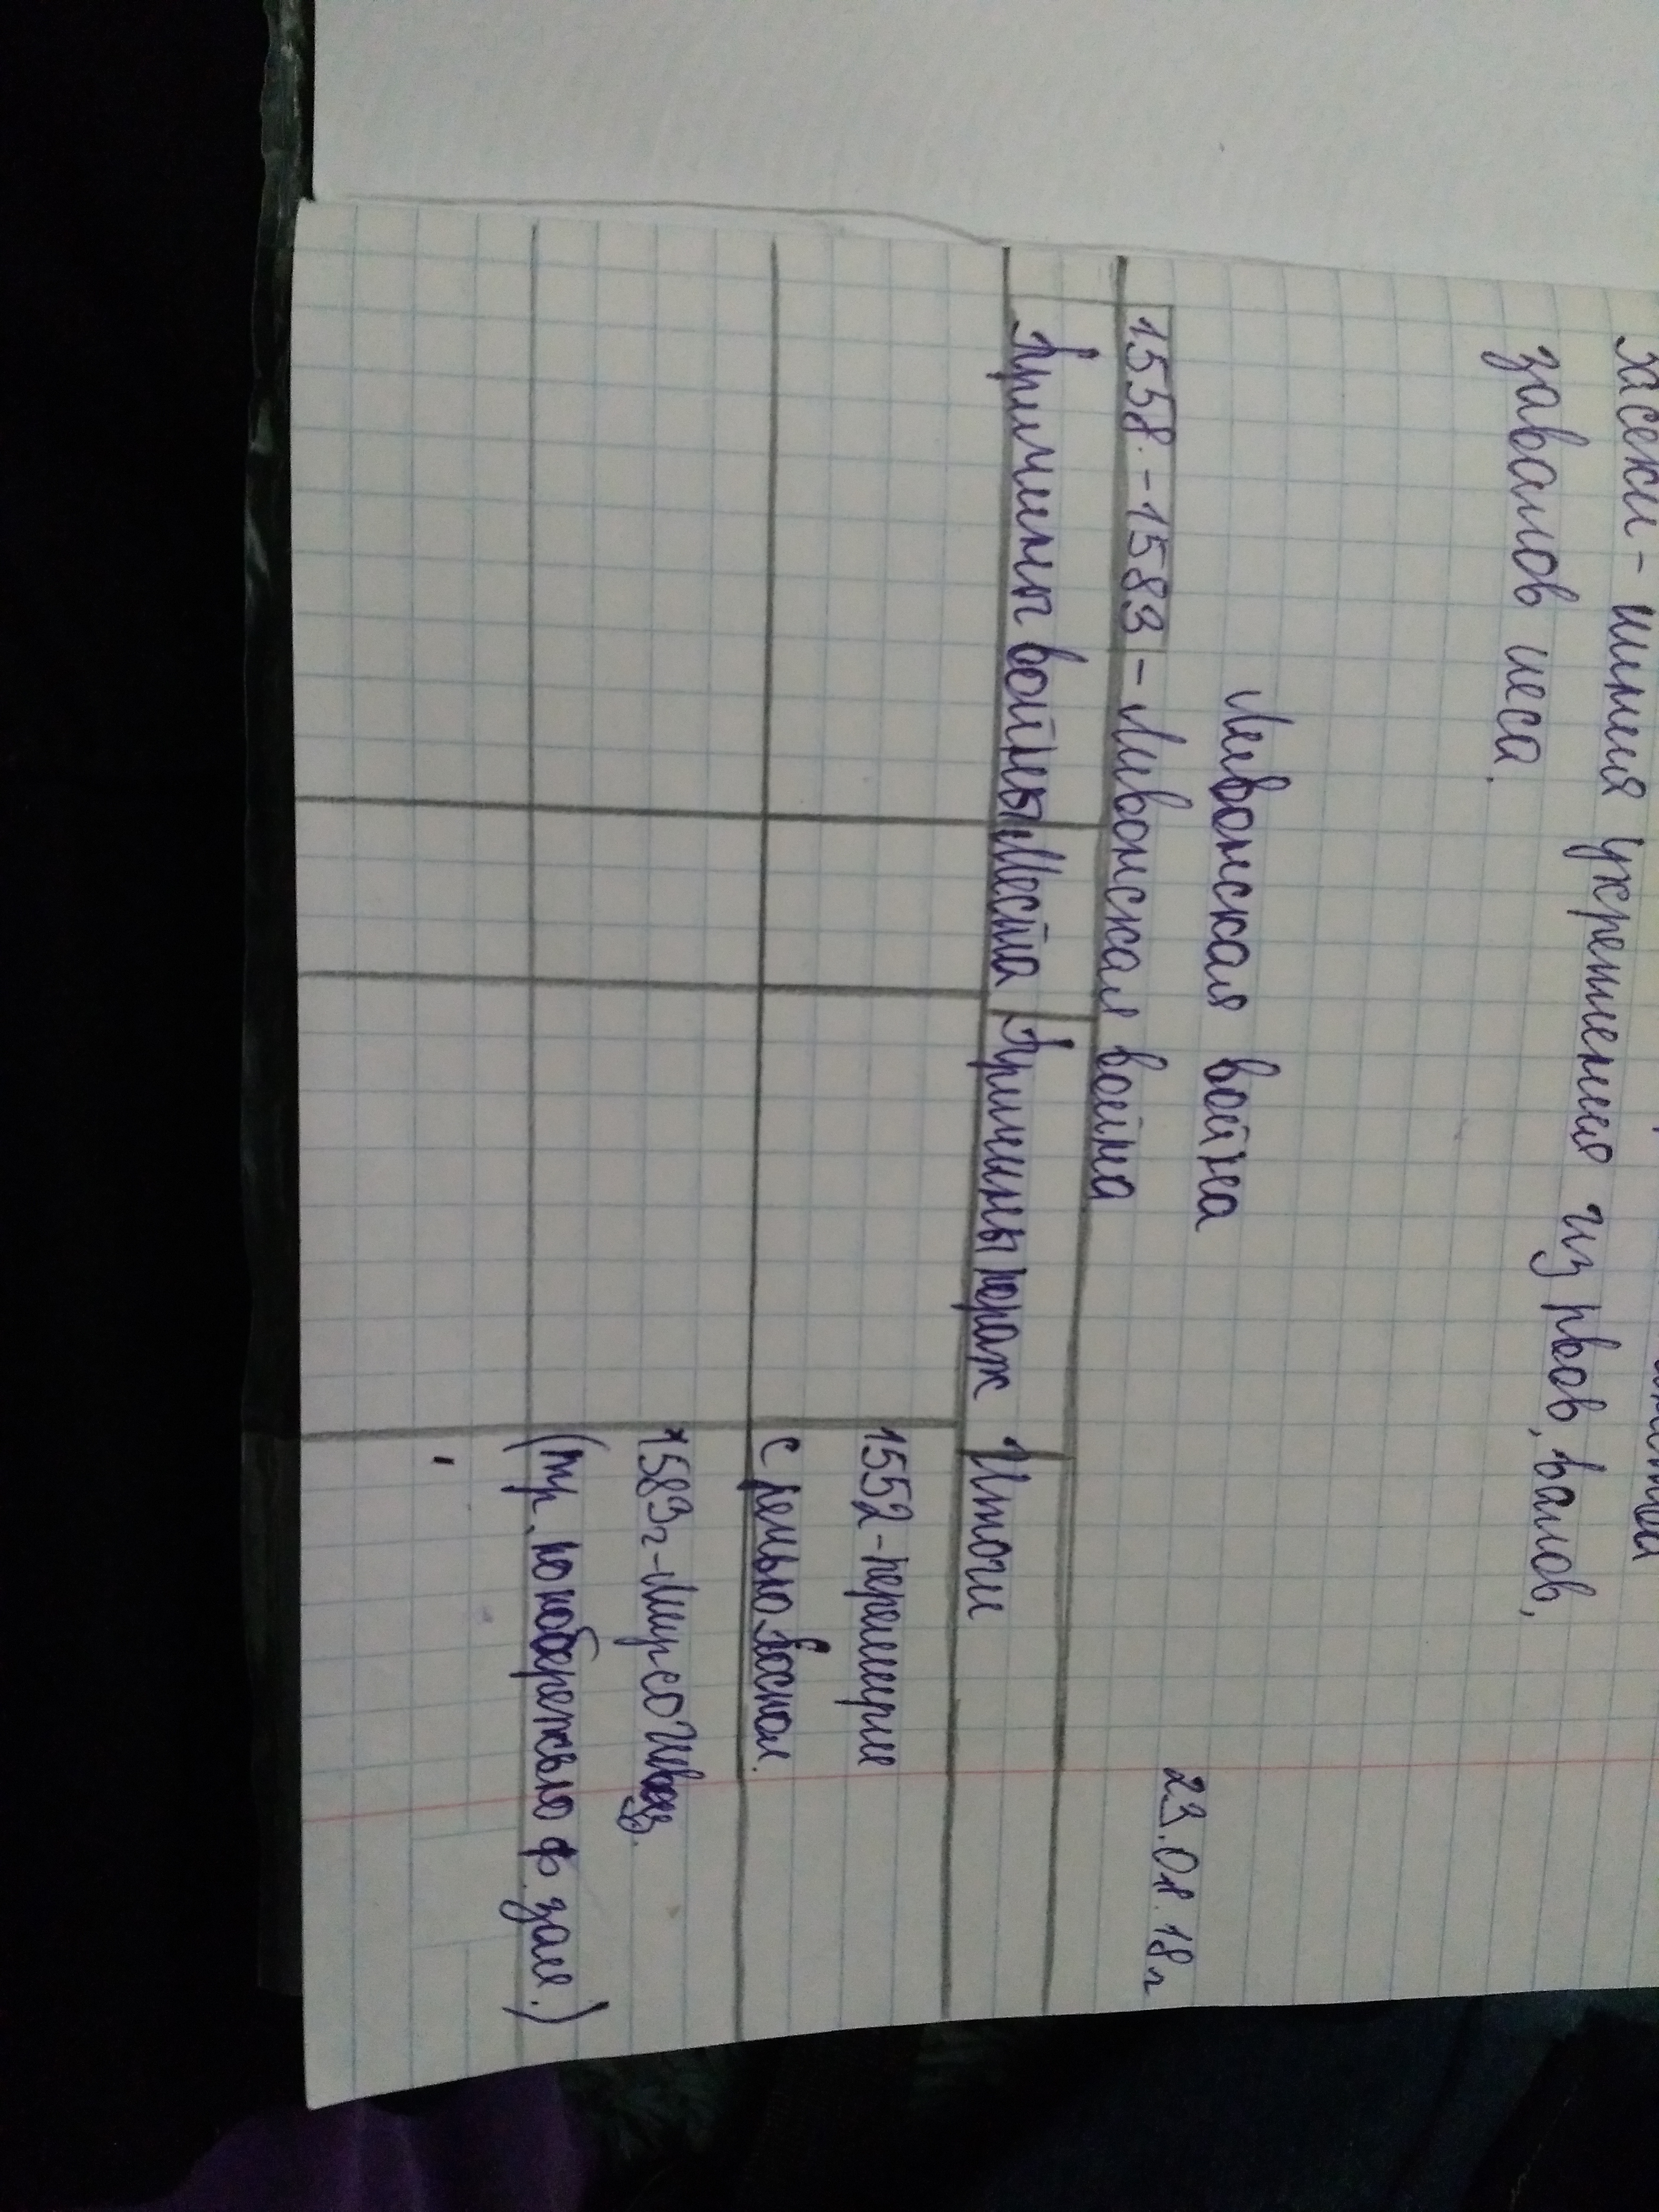 Засеки - линия укрепления из рвов, валов,
завалов леса.
23.01.18г
Ливонская война
1558.-1583 - Ливонская война
Причины войны Места Причины пораж Итоги
1552-перемирие
с Речью Поспол.
1583г-Мир со Швец.
(тр. побережью ф. зал.)